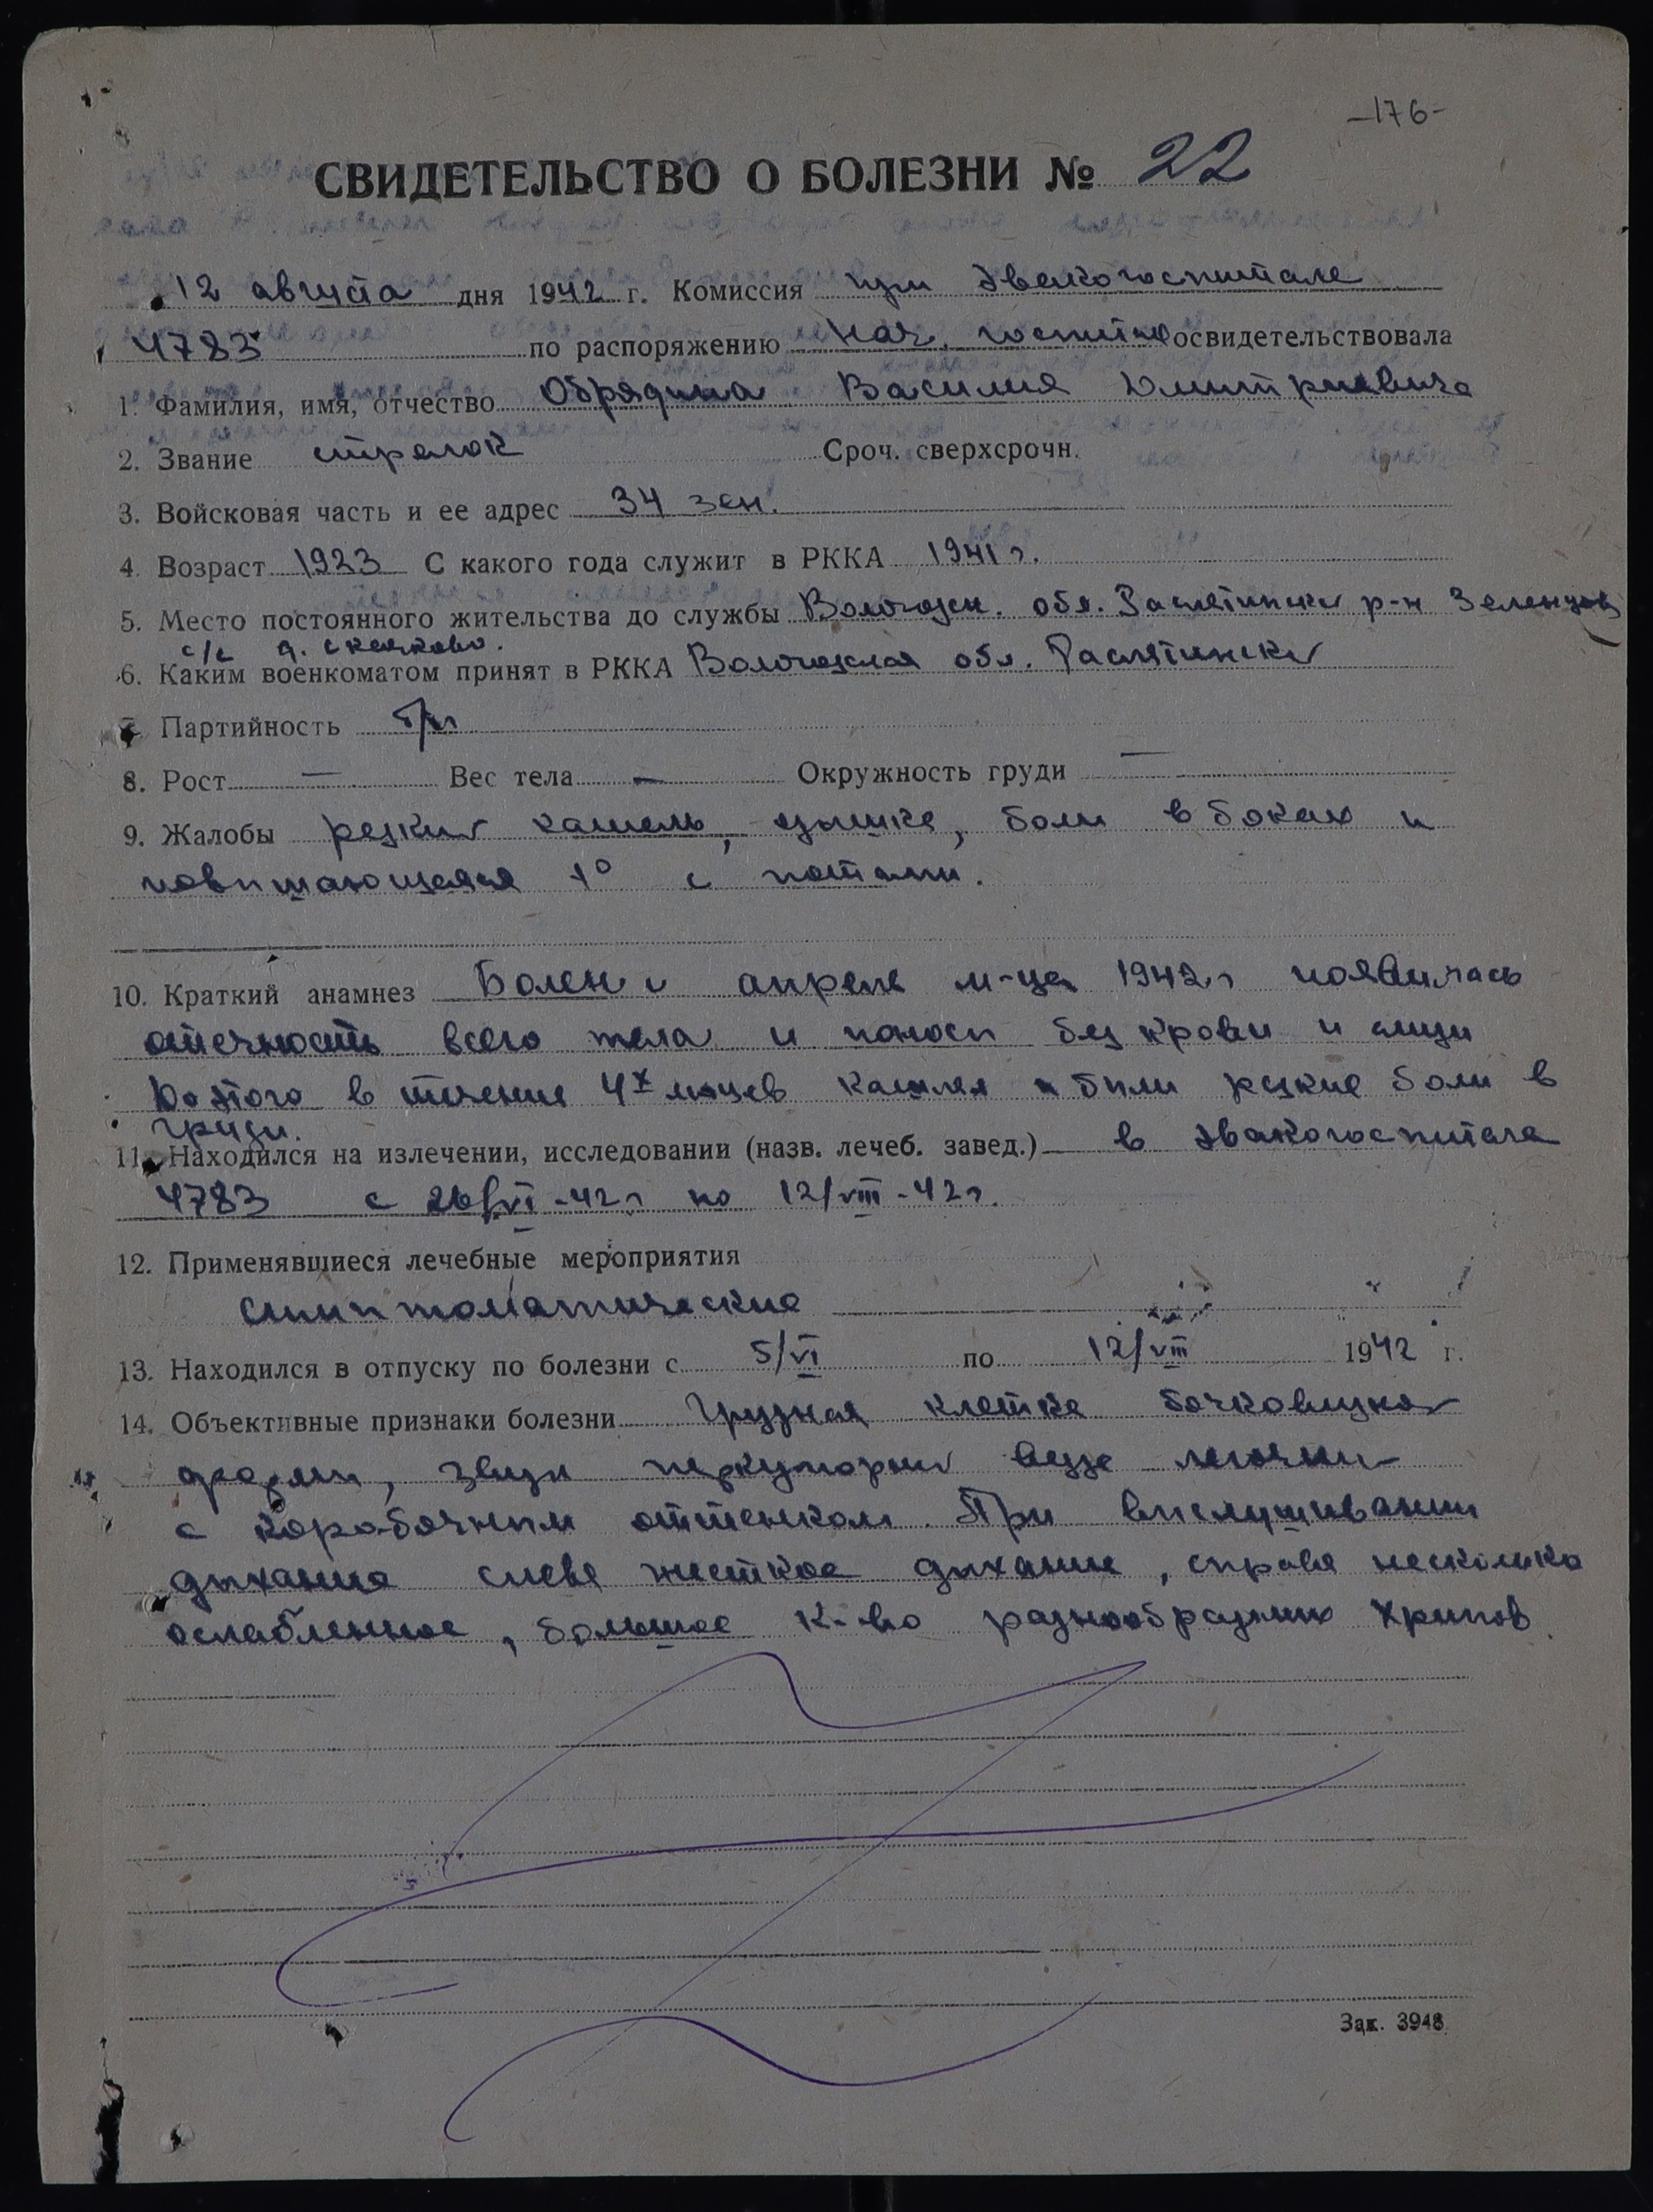 -176-
СВИДЕТЕЛЬСТВО О БОЛЕЗНИ № 22
12 августа дня 1942 г. Комиссия при Эвакогоспитале
4783 по распоряжению нач. госпит освидетельствовала
1. Фамилия, имя, отчество Обрядина Василия Дмитриевича
2. Звание стрелок Сроч. сверхсрочн.
3. Войсковая часть и ее адрес 34 зен.
4. Возраст 1923 С какого года служит в РККА 1941 г.
5. Место постоянного жительства до службы Вологодск. обл. Рослятинский р-н Зеленцов
с/с д. Скочково.
6. Каким военкоматом принят в РККА Вологодская обл. Рослятинский
7. Партийность б/п
8. Рост — Вес тела — Окружность груди —
9. Жалобы резкий кашель, одышка, боли в боках и
повышающаяся t° с потами.
10. Краткий анамнез Болен с апреля м-ца 1942 г появилась
отечность всего тела и поносы без крови и слизи
До этого в течение 4х м-цев кашлял были резкие боли в
груди.
11. Находился на излечении, исследовании (назв. лечеб. завед.) в Эвакогоспитале
4783 с 26/VI-42 г по 12/VIII-42 г.
12. Применявшиеся лечебные мероприятия
симптоматические
13. Находился в отпуску по болезни с 5/VI по 12/VIII 1942 г.
14. Объективные признаки болезни Грудная клетка бочковидной
формы, звук перкуторный везде легочный
с коробочным оттенком. При выслушивании
дыхание слева жесткое дыхание, справа несколько
ослабленное, большое к-во разнообразных хрипов.
Зак. 3948